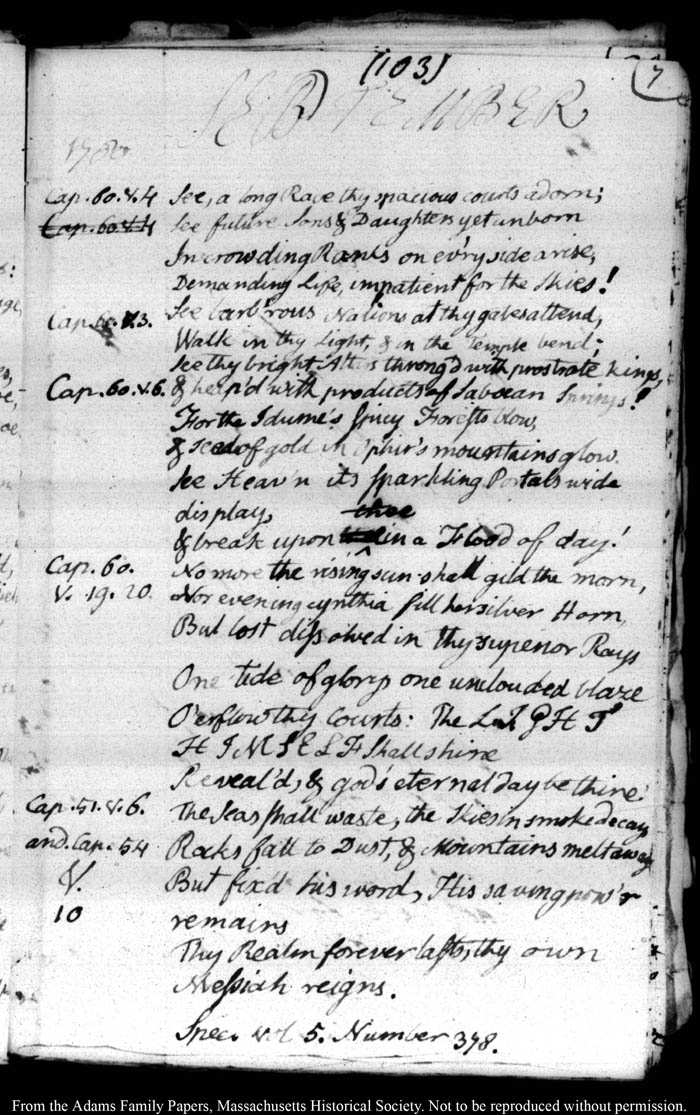 (103)
7
SEPTEMBER
1780
Cap. 60. v. 4 See, a long Race thy spacious courts adorn;
Cap. 60. v. 4 See future Sons & Daughters yet unborn
In crowding Ranks on ev'ry side arise,
Demanding Life, impatient for the Skies!
Cap. 60. v. 3. See barb'rous Nations at thy gates attend,
Walk in thy Light, & in the Temple bend;
See thy bright Altars throng'd with prostrate kings,
Cap. 60. v. 6. & heap'd with products of Sabœan Springs!
For the Idume's Spicy Forests blow,
& seeds of gold in Ophir's mountains glow.
See Heav'n its sparkling Portals wide
display,
thee
& break upon in a Flood of day!
Cap. 60. No more the rising sun shall gild the morn,
V. 19. 20. Nor evening cynthia fill her silver Horn,
But lost dissolved in thy superior Rays
One tide of glory, one unclouded blaze
O'erflow thy Courts: The LIGHT
HIMSELF Shall shine
Reveal'd, & god's eternal day be thine!
Cap. 51. v. 6. The Seas shall waste, the Skies in smoke decay
and. Cap. 54 Rocks fall to Dust, & Mountains melt away
V. But fix'd his word, His saving pow'r
10 remains
Thy Realm forever lasts, thy own
Messiah reigns.
Spec. vol 5. Number 378.
From the Adams Family Papers, Massachusetts Historical Society. Not to be reproduced without permission.